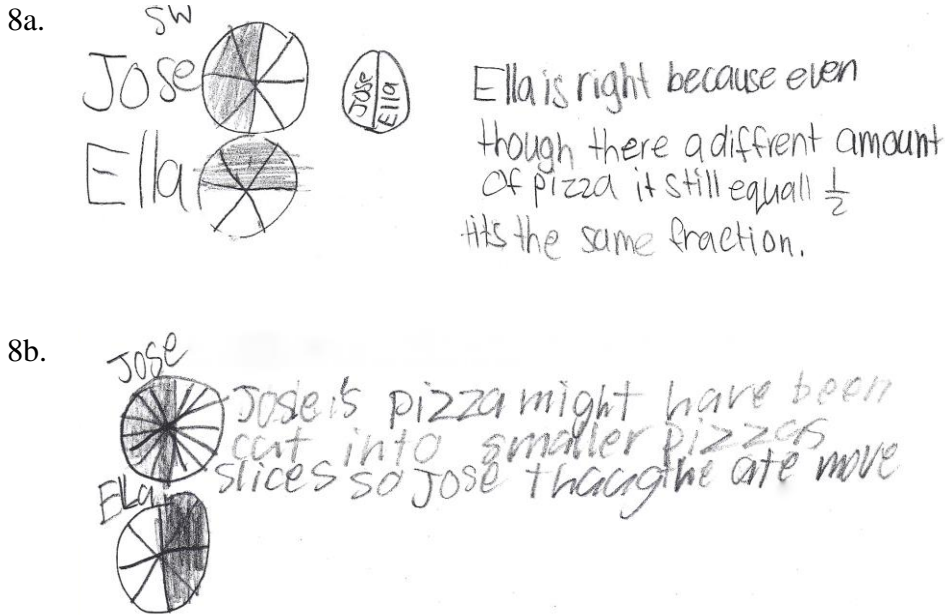 8a.
SW
Jose
Jose
Ella
Ella
Ella is right because even
though there a diffrent amount
of pizza it still equall 1/2
it's the same fraction.
8b.
Jose
Josie's pizza might have been
cut into smaller pizzas
slices so Jose thaug he ate move
Ella